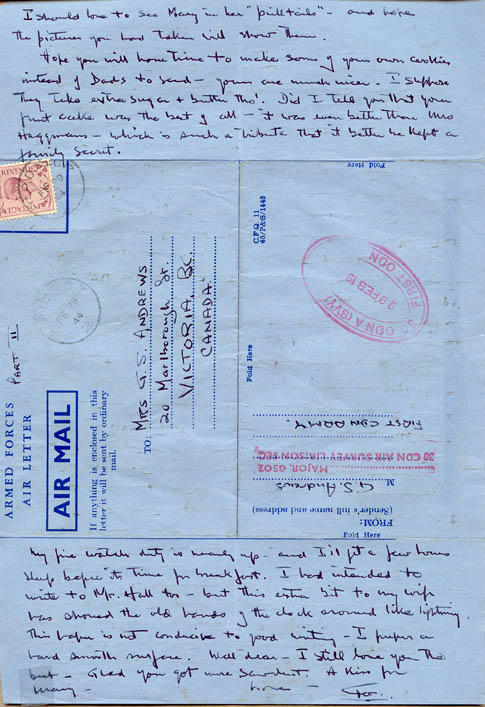 I should love to see Mary in her "pilltails" - and hope
the pictures you had taken will show them.
Hope you will have time to make some of your own cookies
instead of Dads to send - yours are much nicer. I suppose
they take extra sugar + butter tho'. Did I tell you that your
fruit cake was the best of all - it was even better than Mrs
Haggmans - which is such a tribute that it better be kept a
family secret.
Fold Here
POSTAGE
REVENUE
PART II
ARMED FORCES
AIR LETTER
AIR MAIL
If anything is enclosed in this
letter it will be sent by ordinary
mail.
TO: MRS G.S. ANDREWS
20 Marlborough St.
VICTORIA, BC.
CANADA
C.F.Q. 11
40/P&S/1448
Fold Here
ODN A (SVY)
29 FEB 19
FIRST CDN
FROM:
(Sender's full name and address)
M. G.S. Andrews
MAJOR, GSO2
30 CDN AIR SURVEY LIAISON SEC.
FIRST CDN ARMY.
Fold Here
My fire watch duty is nearly up - and I'll get a few hours
sleep before its time for breakfast. I had intended to
write to Mr. Hall too - but this extra bit to my wife
has shoved the old hands of the clock around like lightning.
This paper is not conducive to good writing - I prefer a
hard smooth surface. Well dear - I still love you the
best - Glad you got more Sawdust. A Kiss for
Mary - love -